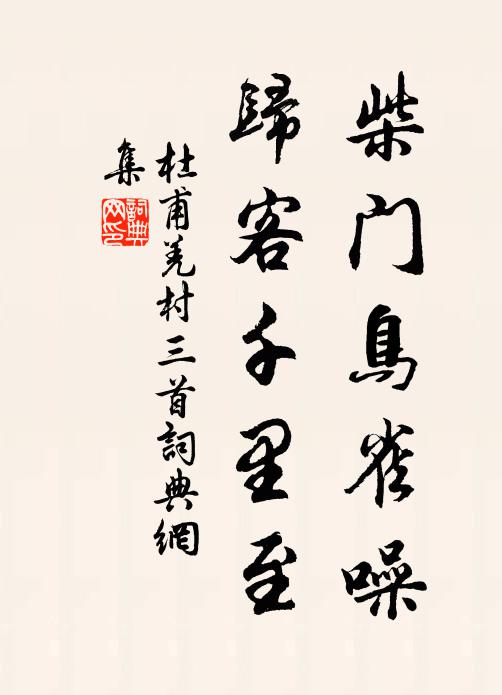 柴门鳥雀噪
歸客千里至
杜甫羌村三首詞典網
集
詞典网印